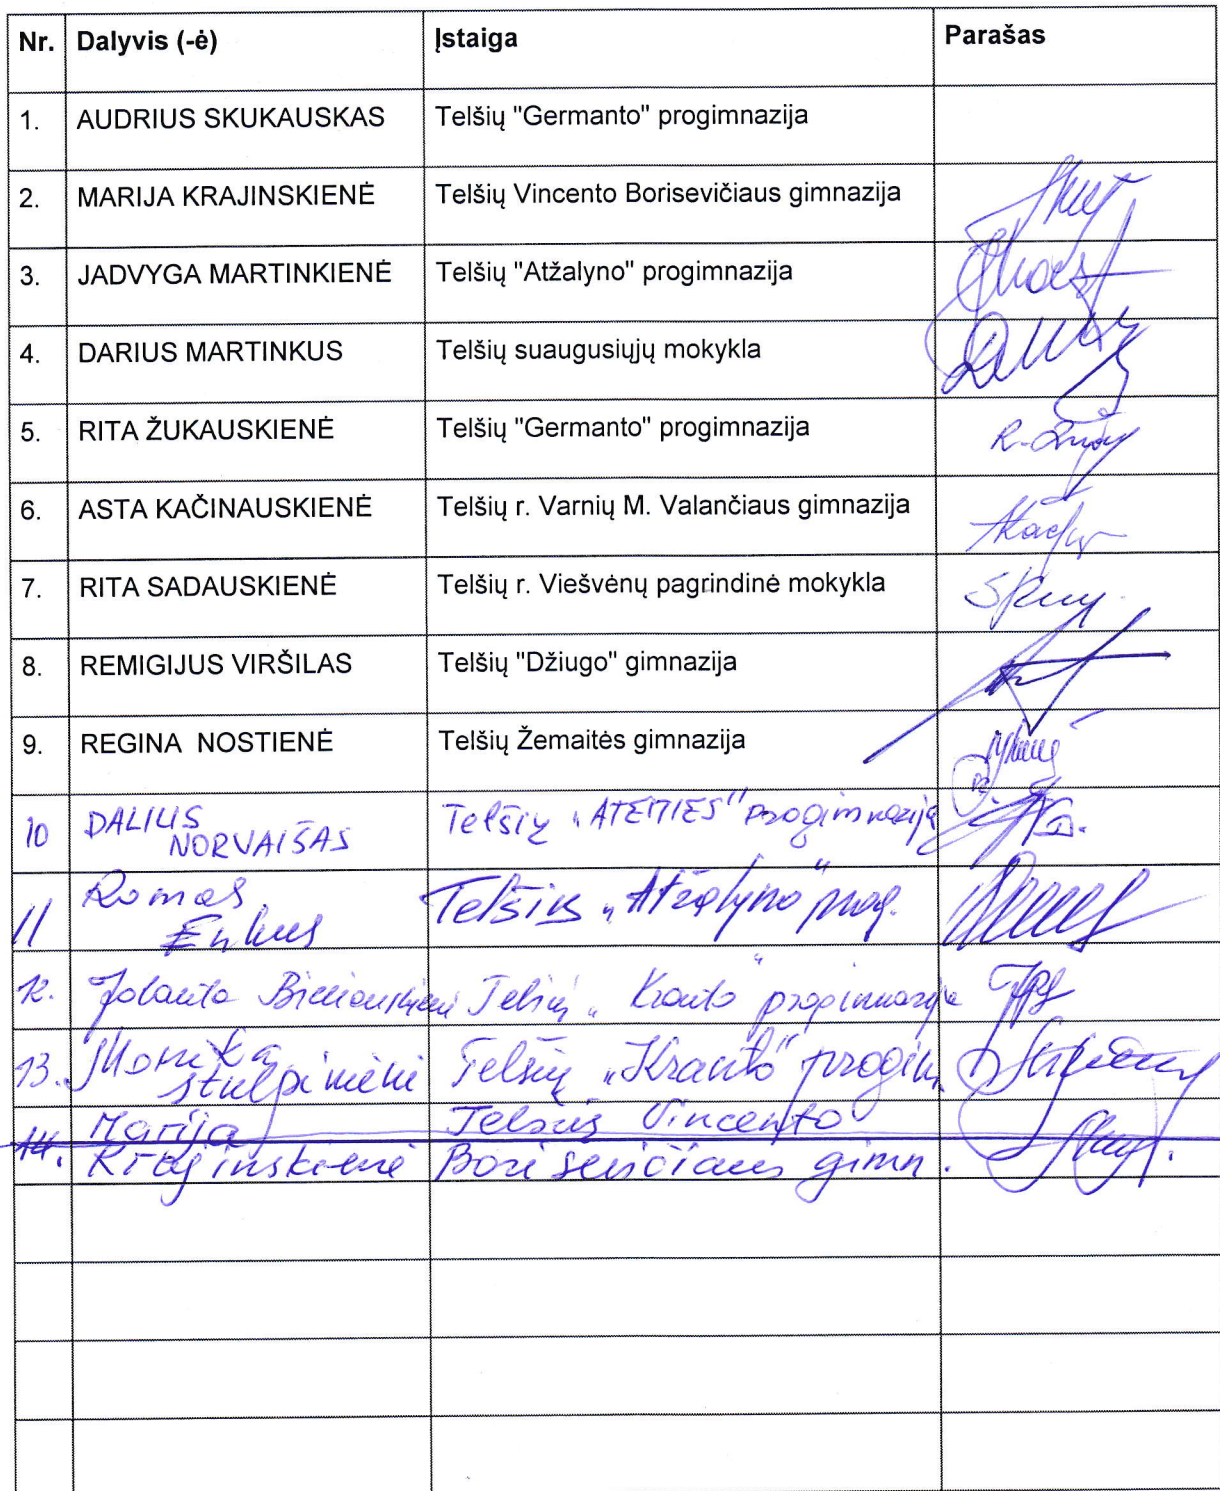 Nr. Dalyvis (-ė) Įstaiga Parašas
1. AUDRIUS SKUKAUSKAS Telšių "Germanto" progimnazija
2. MARIJA KRAJINSKIENĖ Telšių Vincento Borisevičiaus gimnazija
3. JADVYGA MARTINKIENĖ Telšių "Atžalyno" progimnazija
4. DARIUS MARTINKUS Telšių suaugusiųjų mokykla
5. RITA ŽUKAUSKIENĖ Telšių "Germanto" progimnazija
6. ASTA KAČINAUSKIENĖ Telšių r. Varnių M. Valančiaus gimnazija
7. RITA SADAUSKIENĖ Telšių r. Viešvėnų pagrindinė mokykla
8. REMIGIJUS VIRŠILAS Telšių "Džiugo" gimnazija
9. REGINA NOSTIENĖ Telšių Žemaitės gimnazija
10 DALIUS Telšių „ATEITIES" progimnazija
NORVAIŠAS
11 Romas Telšių „Atžalyno" prog.
12. Jolanta Telšių „Kranto" progimnazija
13. Monika Telšių „Kranto" progimn.
Stulpinienė
14. Marija Telšių Vincento
Krajinskienė Borisevičiaus gimn.